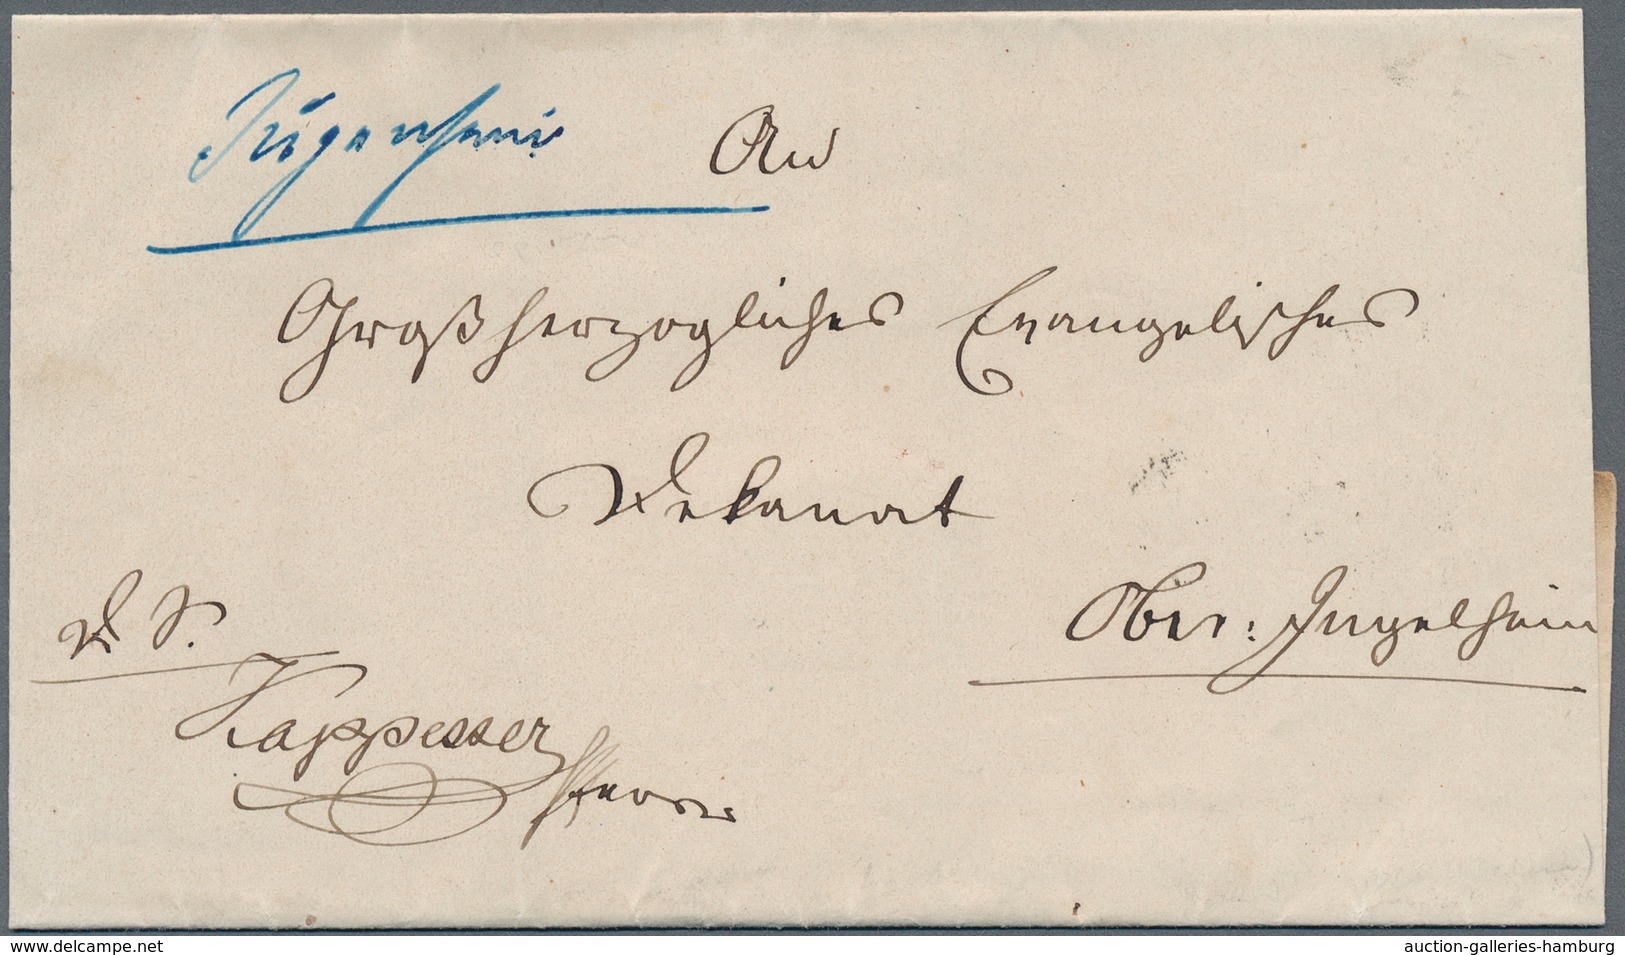 Jügenheim
An
Großherzogliches Evangelisches
Dekanat
D. S.
Ober-Ingelheim
Kappesser
Pfarrer
www.delcampe.net
auction-galleries-hamburg